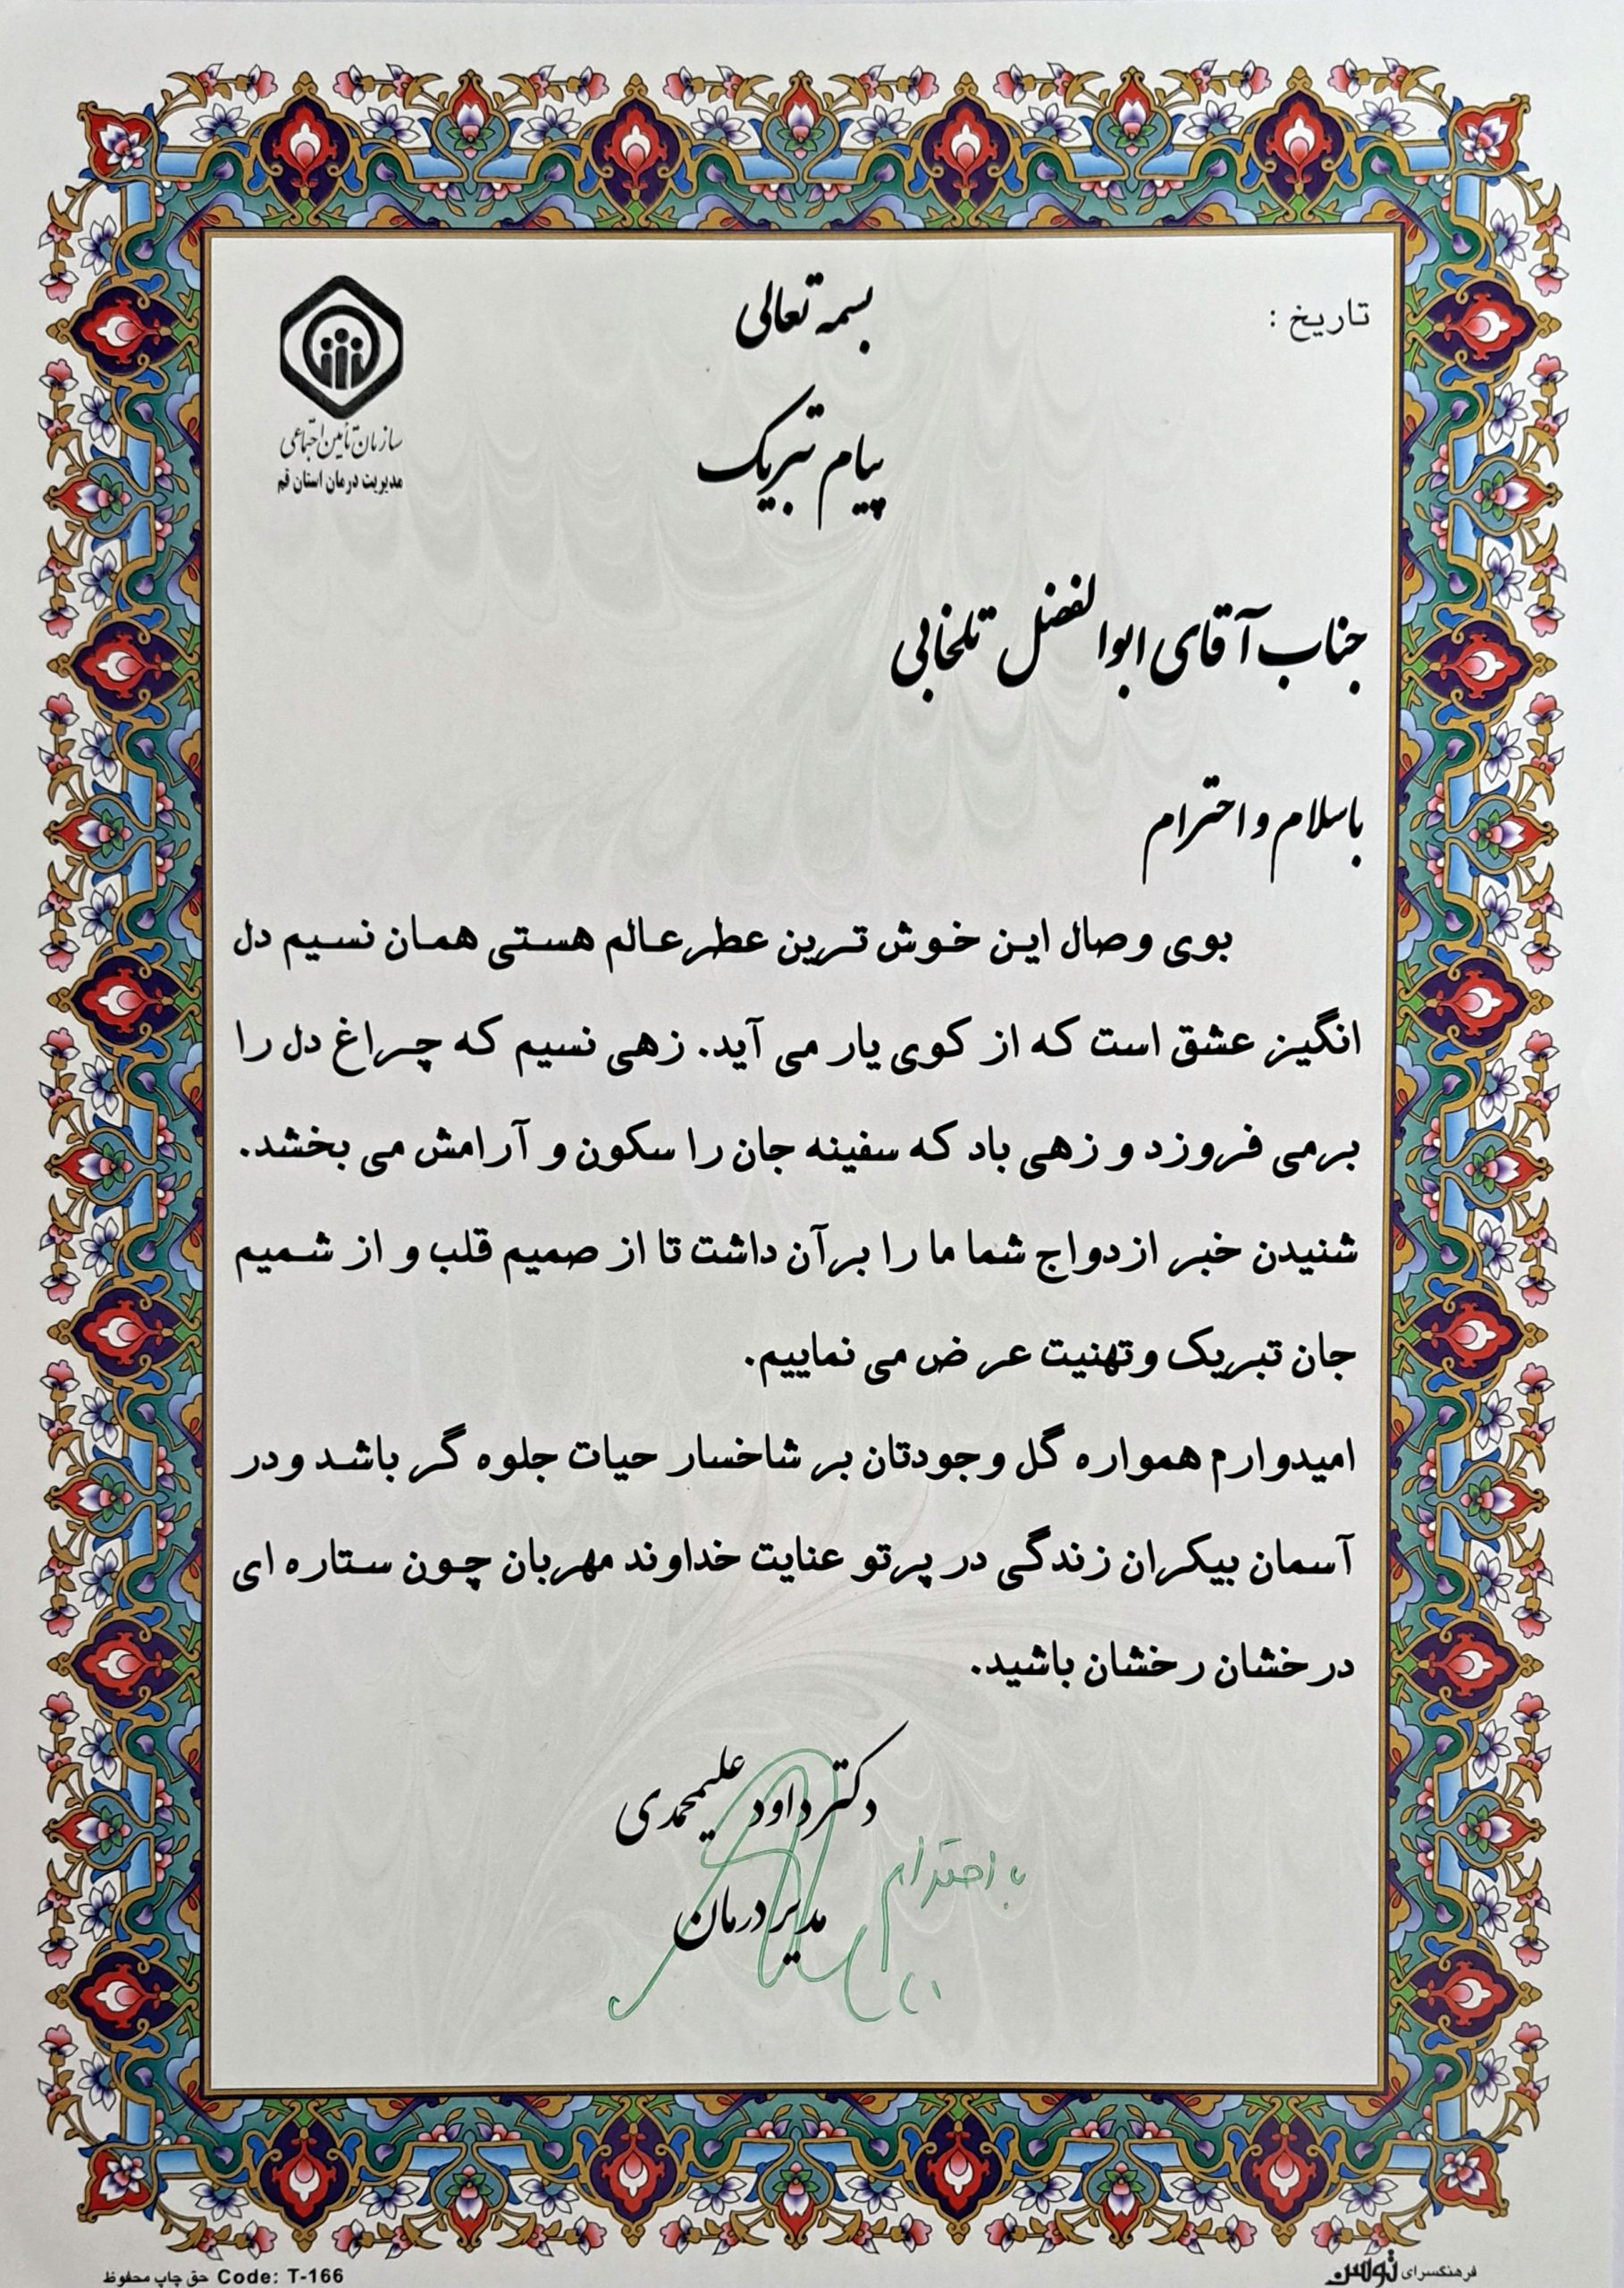 بسمه تعالی
تاریخ :
سازمان تأمین اجتماعی
مدیریت درمان استان قم
پیام تبریک
جناب آقای ابوالفضل تلخابی
باسلام و احترام
بوی وصال این خوش ترین عطرعالم هستی همان نسیم دل
انگیز عشق است که از کوی یار می آید. زهی نسیم که چراغ دل را
برمی فروزد و زهی باد که سفینه جان را سکون و آرامش می بخشد.
شنیدن خبر ازدواج شما ما را برآن داشت تا از صمیم قلب و از شمیم
جان تبریک وتهنیت عرض می نماییم.
امیدوارم همواره گل وجودتان بر شاخسار حیات جلوه گر باشد ودر
آسمان بیکران زندگی در پرتو عنایت خداوند مهربان چون ستاره ای
درخشان رخشان باشید.
دکتر داود علیمحمدی
با احترام
مدیر درمان
فرهنگسرای توس
حق چاپ محفوظ Code: T-166